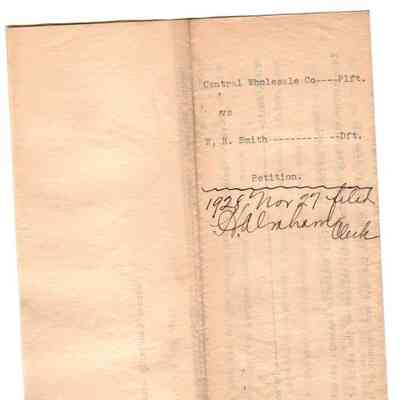 Central Wholesale Co----Plft.
vs
Smith-------------Dft.
Petition.
Nov 27 filed
Abrahams
Clerk